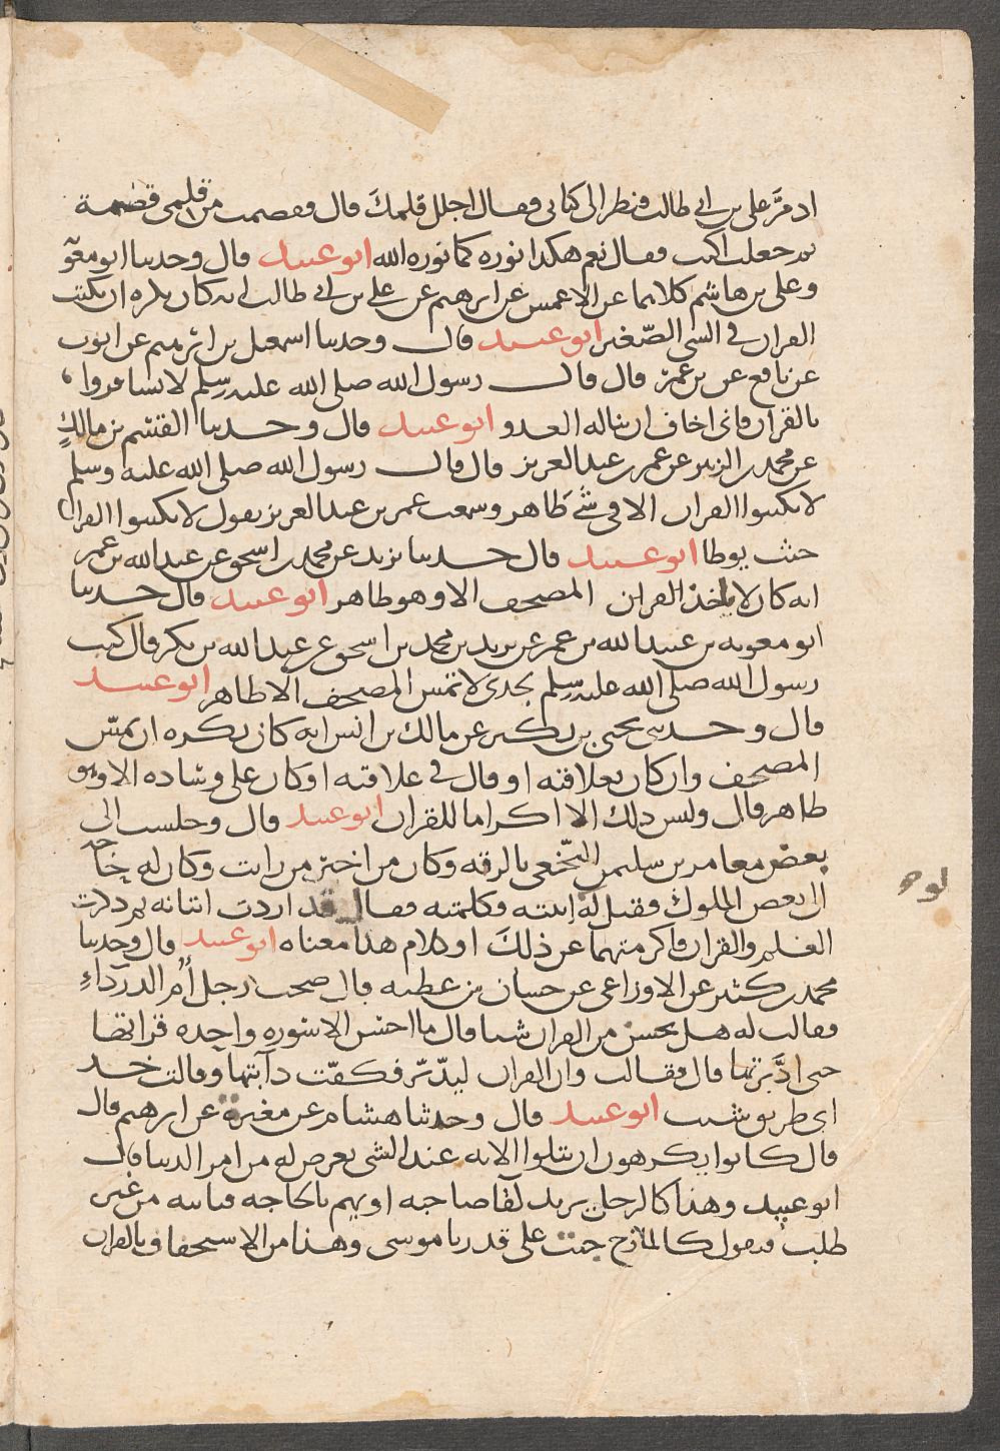 اذ مر علي بن ابي طالب فنظر الى كتابي فقال اجلل قلمك قال فقصمت من قلمي قصمة
ثم جعلت اكتب فقال نعم هكذا نوره كما نوره الله ابو عبيد قال وحدثنا ابو معوية
وعلي بن هاشم كلاهما عن الاعمش عن ابرهيم عن علي بن ابي طالب انه كان يكره ان يكتب
القران في الشي الصغير ابو عبيد قال وحدثنا اسمعيل بن ابرهيم عن ايوب
عن نافع عن بن عمر قال قال رسول الله صلى الله عليه وسلم لا تسافروا
بالقران فاني اخاف ان يناله العدو ابو عبيد قال وحدثنا القسم بن مالك
عن محمد بن الزبير عن عمر بن عبد العزيز قال قال رسول الله صلى الله عليه وسلم
لا تكتبوا القران الا في شي طاهر وسمعت عمر بن عبد العزيز يقول لا تكتبوا القران
حيث يوطا ابو عبيد قال حدثنا يزيد عن محمد بن اسحق عن عبد الله بن عمر
انه كان لا ياخذ القران المصحف الا وهو طاهر ابو عبيد قال حدثنا
ابو معوية بن عبيد الله بن عمر عن يزيد بن محمد بن اسحق عن عبد الله بن بكر قال كتب
رسول الله صلى الله عليه وسلم بجدي لا تمس المصحف الا طاهر ابو عبيد
قال وحدثني يحيى بن بكير عن مالك بن انس انه كان يكره ان يمس
المصحف وان كان بعلاقته او قال في علاقته او كان على وساده الا وهو
طاهر قال وليس ذلك الا اكراما للقران ابو عبيد قال وجلست الى
بعض معامر بن سليمن النخعي بالرقه وكان من اخير من رايت وكان له حاجه
الى بعض الملوك فقيل له اتيته وكلمته فقال قد اردت اتيانه ثم ذكرت
العلم والقران فاكرمتهما عن ذلك او كلام هذا معناه ابو عبيد قال وحدثنا
محمد بن كثير عن الاوزاعي عن حسان بن عطيه قال صحب رجل ام الدرداء
فقالت له هل يحسن من القران شيا قال ما احسن الا سوره واحده قراتها
حتى اذبرتها قال فقالت وان القران ليدبر فكفت دابتها وقالت خذ
اي طريق شيت ابو عبيد قال وحدثنا هشام عن مغيرة عن ابرهيم قال
قال كانوا يكرهون ان يتلوا الايه عند الشي يعرض له من امر الدنيا قال
ابو عبيد وهذا كالرجل يريد لقا صاحبه او يهم بالحاجه فياتيه من غير
طلب فيقول كالمازح جيت على قدر يا موسى وهذا من الاستخفاف بالقران